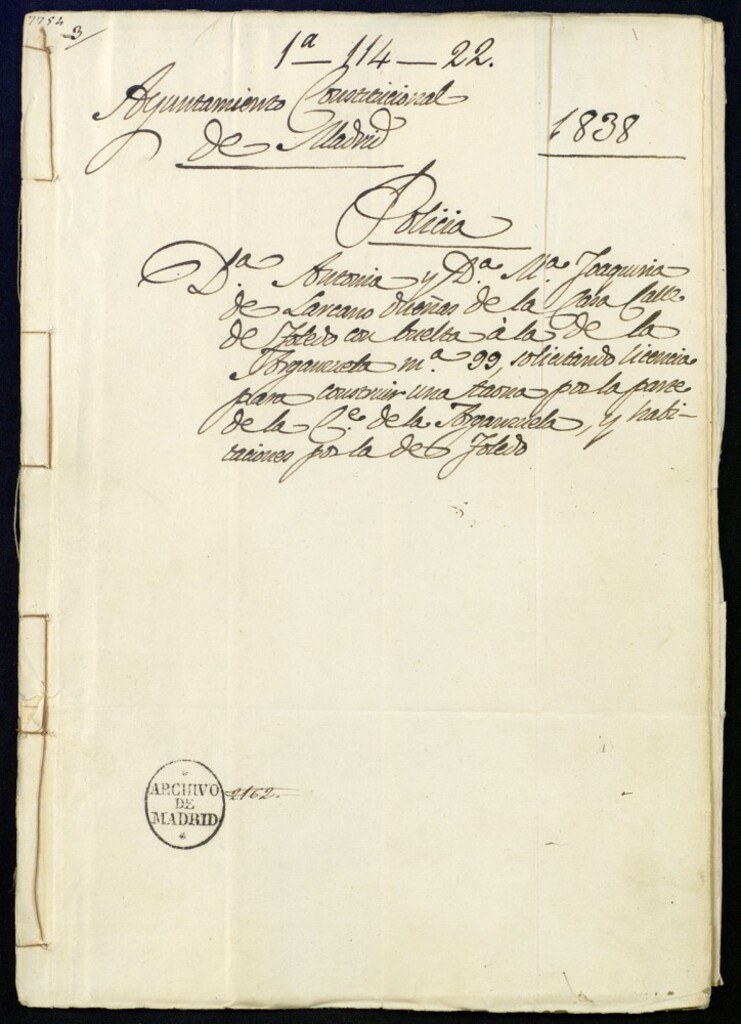 3
1ª — 114 — 22.
Ayuntamiento Constitucional
de Madrid
1838
Policia
D.ª Antonia y D.ª M.ª Joaquina
de Larcano dueñas de la Casa Calle
de Toledo con buelta á la de la
Arganzuela n.º 99, solicitando licencia
para construir una taona por la parte
de la C.e de la Arganzuela, y habi-
taciones por la de Toledo
ARCHIVO
DE
MADRID
2162.